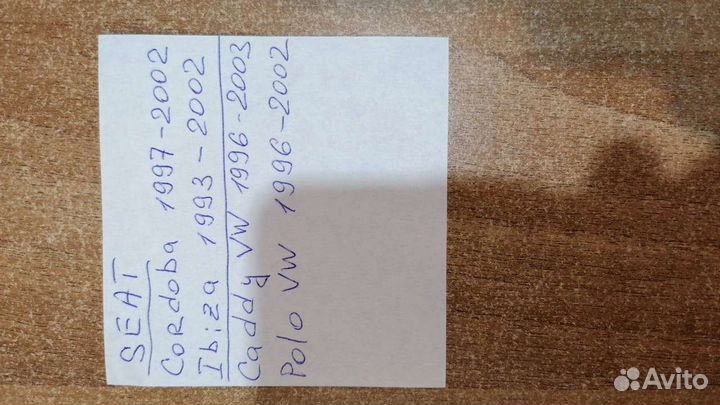 SEAT
Cordoba 1997-2002
Ibiza 1993-2002
Caddy VW 1996-2003
Polo VW 1996-2002
Avito